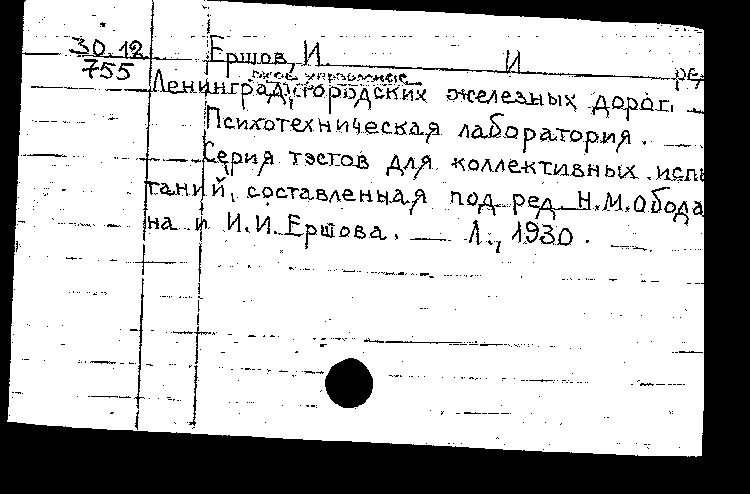 30.12
755
Ершов, И. И. ред
ское управление
Ленинград, городских железных дорог. —
Психотехническая лаборатория. —
Серия тэстов для коллективных испы
таний, составленная под ред. Н.М. Обода
на и И.И. Ершова. — Л., 1930.